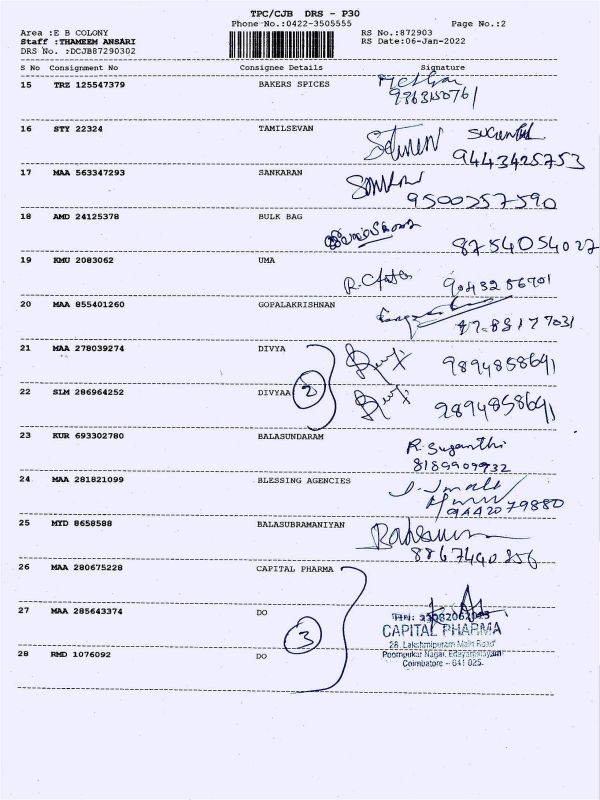 TPC/CJB DRS - P30
Phone No.:0422-3505555 Page No.:2
Area :E B COLONY RS No.:872903
Staff :THAMEEM ANSARI RS Date:06-Jan-2022
DRS No. :DCJB87290302
S No Consignment No Consignee Details Signature
15 TRZ 125547379 BAKERS SPICES
16 STY 22324 TAMILSEVAN
9443425753
17 MAA 563347293 SANKARAN
9500357590
18 AMD 24125378 BULK BAG
8754054027
19 KMU 2083062 UMA
9043256701
20 MAA 855401260 GOPALAKRISHNAN
21 MAA 278039274 DIVYA
9894858691
22 SLM 286964252 DIVYAA 2
9894858691
23 KUR 693302780 BALASUNDARAM R. Suganthi
8189909932
24 MAA 281821099 BLESSING AGENCIES
9442079880
25 MYD 8658588 BALASUBRAMANIYAN
8867490856
26 MAA 280675228 CAPITAL PHARMA
27 MAA 285643374 DO 3
CAPITAL PHARMA
28, Lakshmipuram Main Road
28 RMD 1076092 DO
Poompukar Nagar, Edayarpalayam
Coimbatore - 641 025.